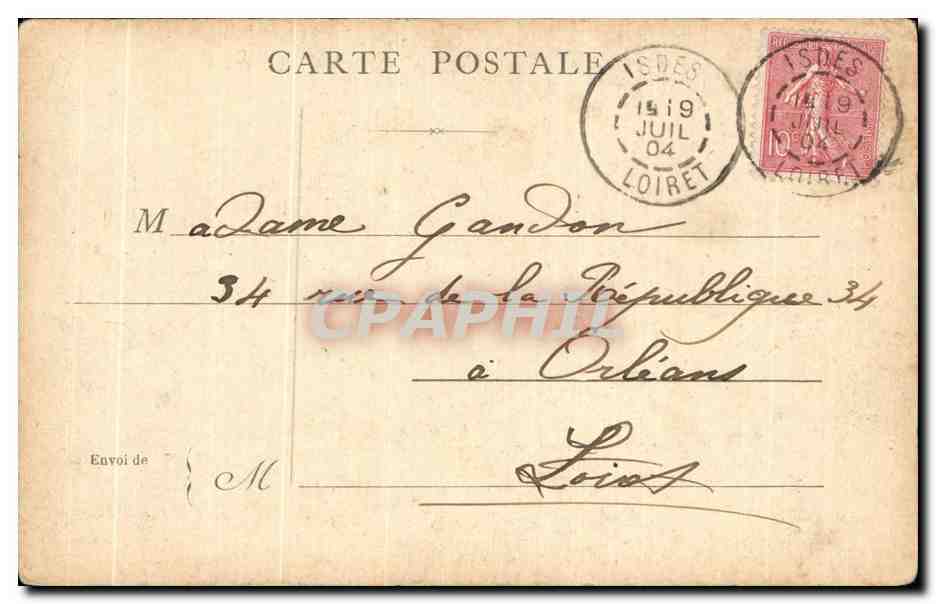 CARTE POSTALE
ISDES
19
JUIL
04
LOIRET
ISDES
19
JUIL
04
LOIRET
10
Madame Gandon
34 rue de la République 34
CPAPHIL
à Orléans
Envoi de
M
Loiret